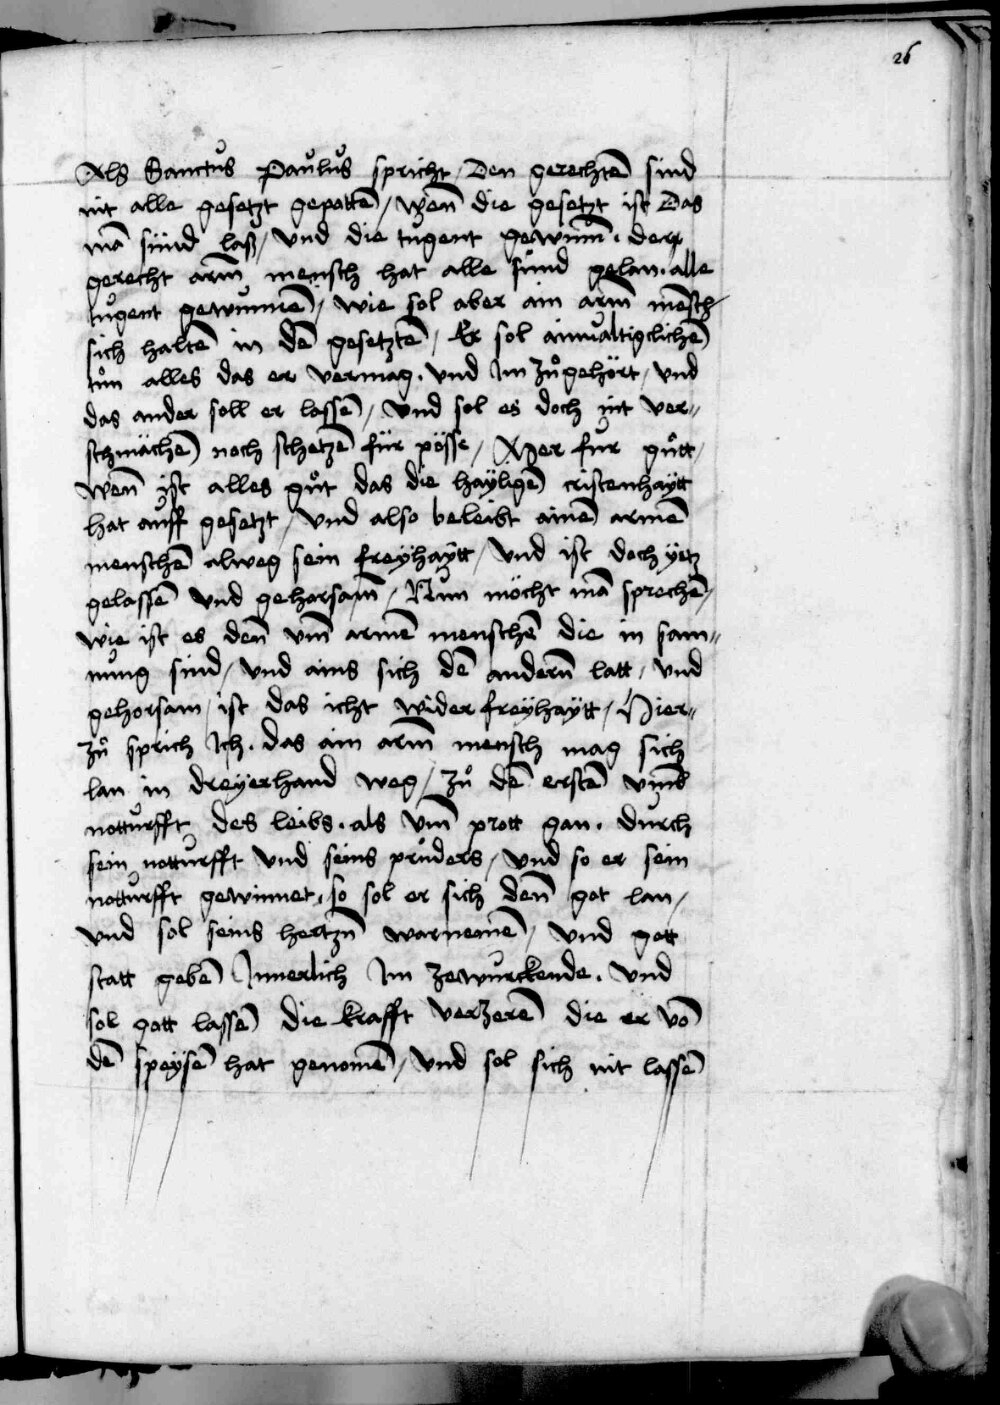 26
Als Sanctus Paulus spricht / Den gerechtē sind
nit alle gesetzt gepottē / wen̄ die gesetzt ist Das
mā sünd laß / vnd die tugent gewinn̄ . der
gerecht arm̄ mensch hat alle sünd gelan . alle
tugent gewunnen̄ / wie sol aber ain arm̄ mensch
sich haltē in dē gesetztē / Er sol ainualtigclichē
tůn alles das er vermag . vnd Im zůgehört / vnd
das ander soll er lassē / vnd sol es doch nit ver„
schmächē noch schetzē für pösse / Mer für gůtt /
wen̄ ist alles gůt das die hayligē cristenhaytt
hat auff gesetzt / vnd also beleibt ainē armē
menschē alweg sein freyhaytt / vnd ist doch yetz
gelassē vnd gehorsam̄ / Nun möcht mā sprechē /
wie ist es den̄ vm̄ armē menschē die in sam„
nung sind / vnd ains sich dē andern̄ latt / vnd
gehorsam / ist das icht wider freyhaytt / Hier„
zů sprich Ich . das ain arm̄ mensch mag sich
lan in dreyerhand weg / zů dē erstē vmb
notturfft des leibs . als vm̄ prott gan . durch
sein notturfft vnd seins průders / vnd so er sein
notturfft gewinnet . so sol er sich den̄ got lan /
vnd sol seins hertzn̄ warnemē / vnd gott
statt gebē Innerlich Im zewurckende . vnd
sol gott lassē die krafft verzerē die er vō
dē speysē hat genomē / vnd sol sich nit lassē